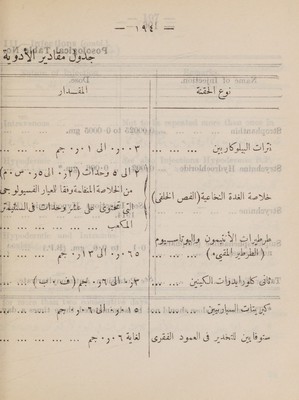 — ١٩٤ —
جدول مقادير الأدوية
نوع الحقنة
المقدار
نترات البيلوكاربين ... ...
٠٠٣ر٠ الى ٠١ر٠ جم ... ...
خلاصة الغدة النخاعية (الفص الخلفى)
٢ الى ٥ وحدات (٢ر٠ الى ٥ر٠ س م٣)
من الخلاصة المقامة وفقا للعيار الفسيولوجى
التى تحتوى على عشر وحدات فى السنتيمتر
المكعب ... ... ... ...
طرطيرات الأنتيمون والبوتاسيوم
(الطرطير المقىء) ... ... ...
٠٦٥ر٠ الى ١٣ر٠ جم ... ...
ثانى كلورايدوات الكينين ... ...
٣ر٠ الى ٦ر٠ جم (ف ٠ ب) ...
كبريتات السبارتيين ... ... ...
٠١٥ر٠ الى ٠٦ر٠ جم ... ...
ستوفايين للتخدير فى العمود الفقرى
لغاية ٠٦ر٠ جم ... ... ...